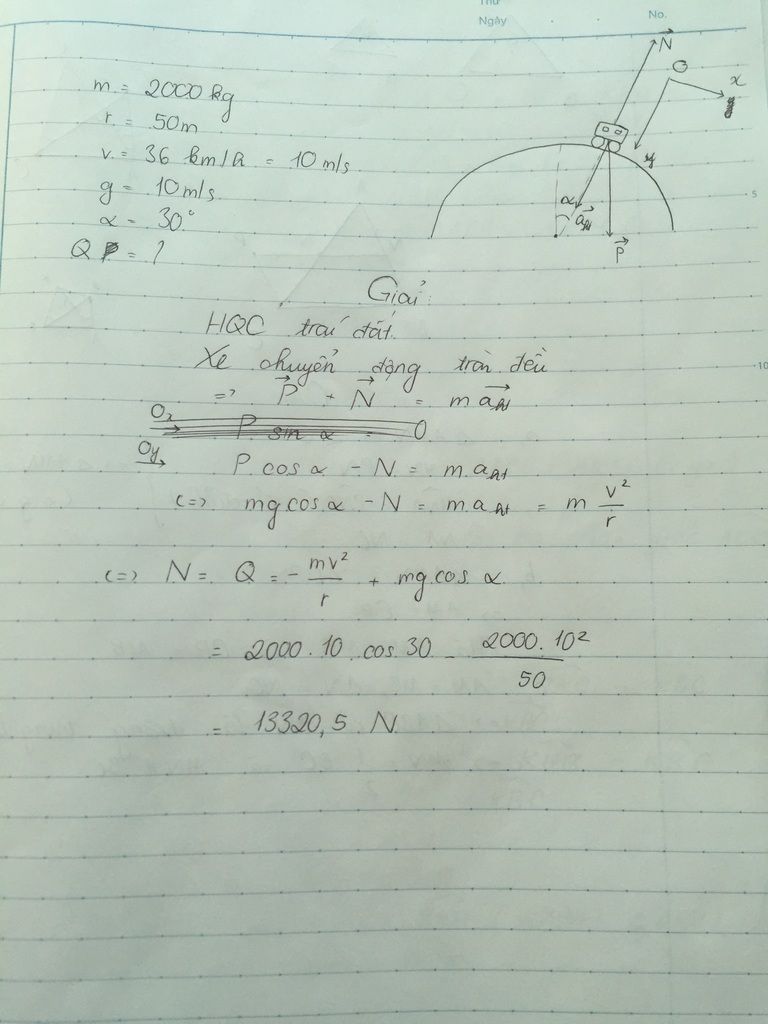 Thứ
Ngày
No.
m = 2000 kg
r = 50m
v = 36 km/h = 10 m/s
g = 10 m/s
α = 30°
Q = ?
N
O
x
y
α
aht
P
5
Giải:
HQC trái đất.
Xe chuyển động tròn đều
=> P + N = m aht
Ox P sin α = 0
Oy P cos α - N = m.aht
<=> mg cos α - N = m.aht = m v²/r
<=> N = Q = - mv²/r + mg.cos α
= 2000.10.cos 30 - 2000.10²/50
= 13320,5 N
10